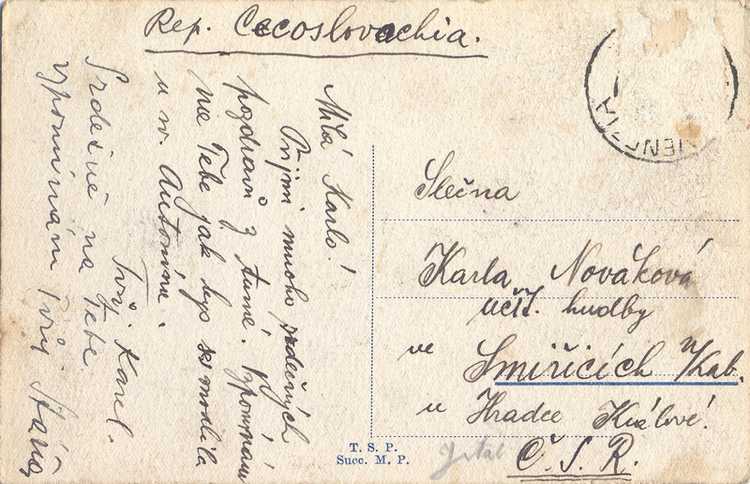 Rep. Cecoslovachia.
Milá Karlo!
Přijmi mnoho srdečných
pozdravů z
Vzpomínám
na Tebe jak bys se modlila
u sv. Antonína.
Tvůj Karel.
Srdečně na Tebe
vzpomínám Tvůj
Slečna
Karla Nováková
učit. hudby
ve Smiřicích n/Lab.
u Hradce Králové.
Č. S. R.
T. S. P.
Succ. M. P.